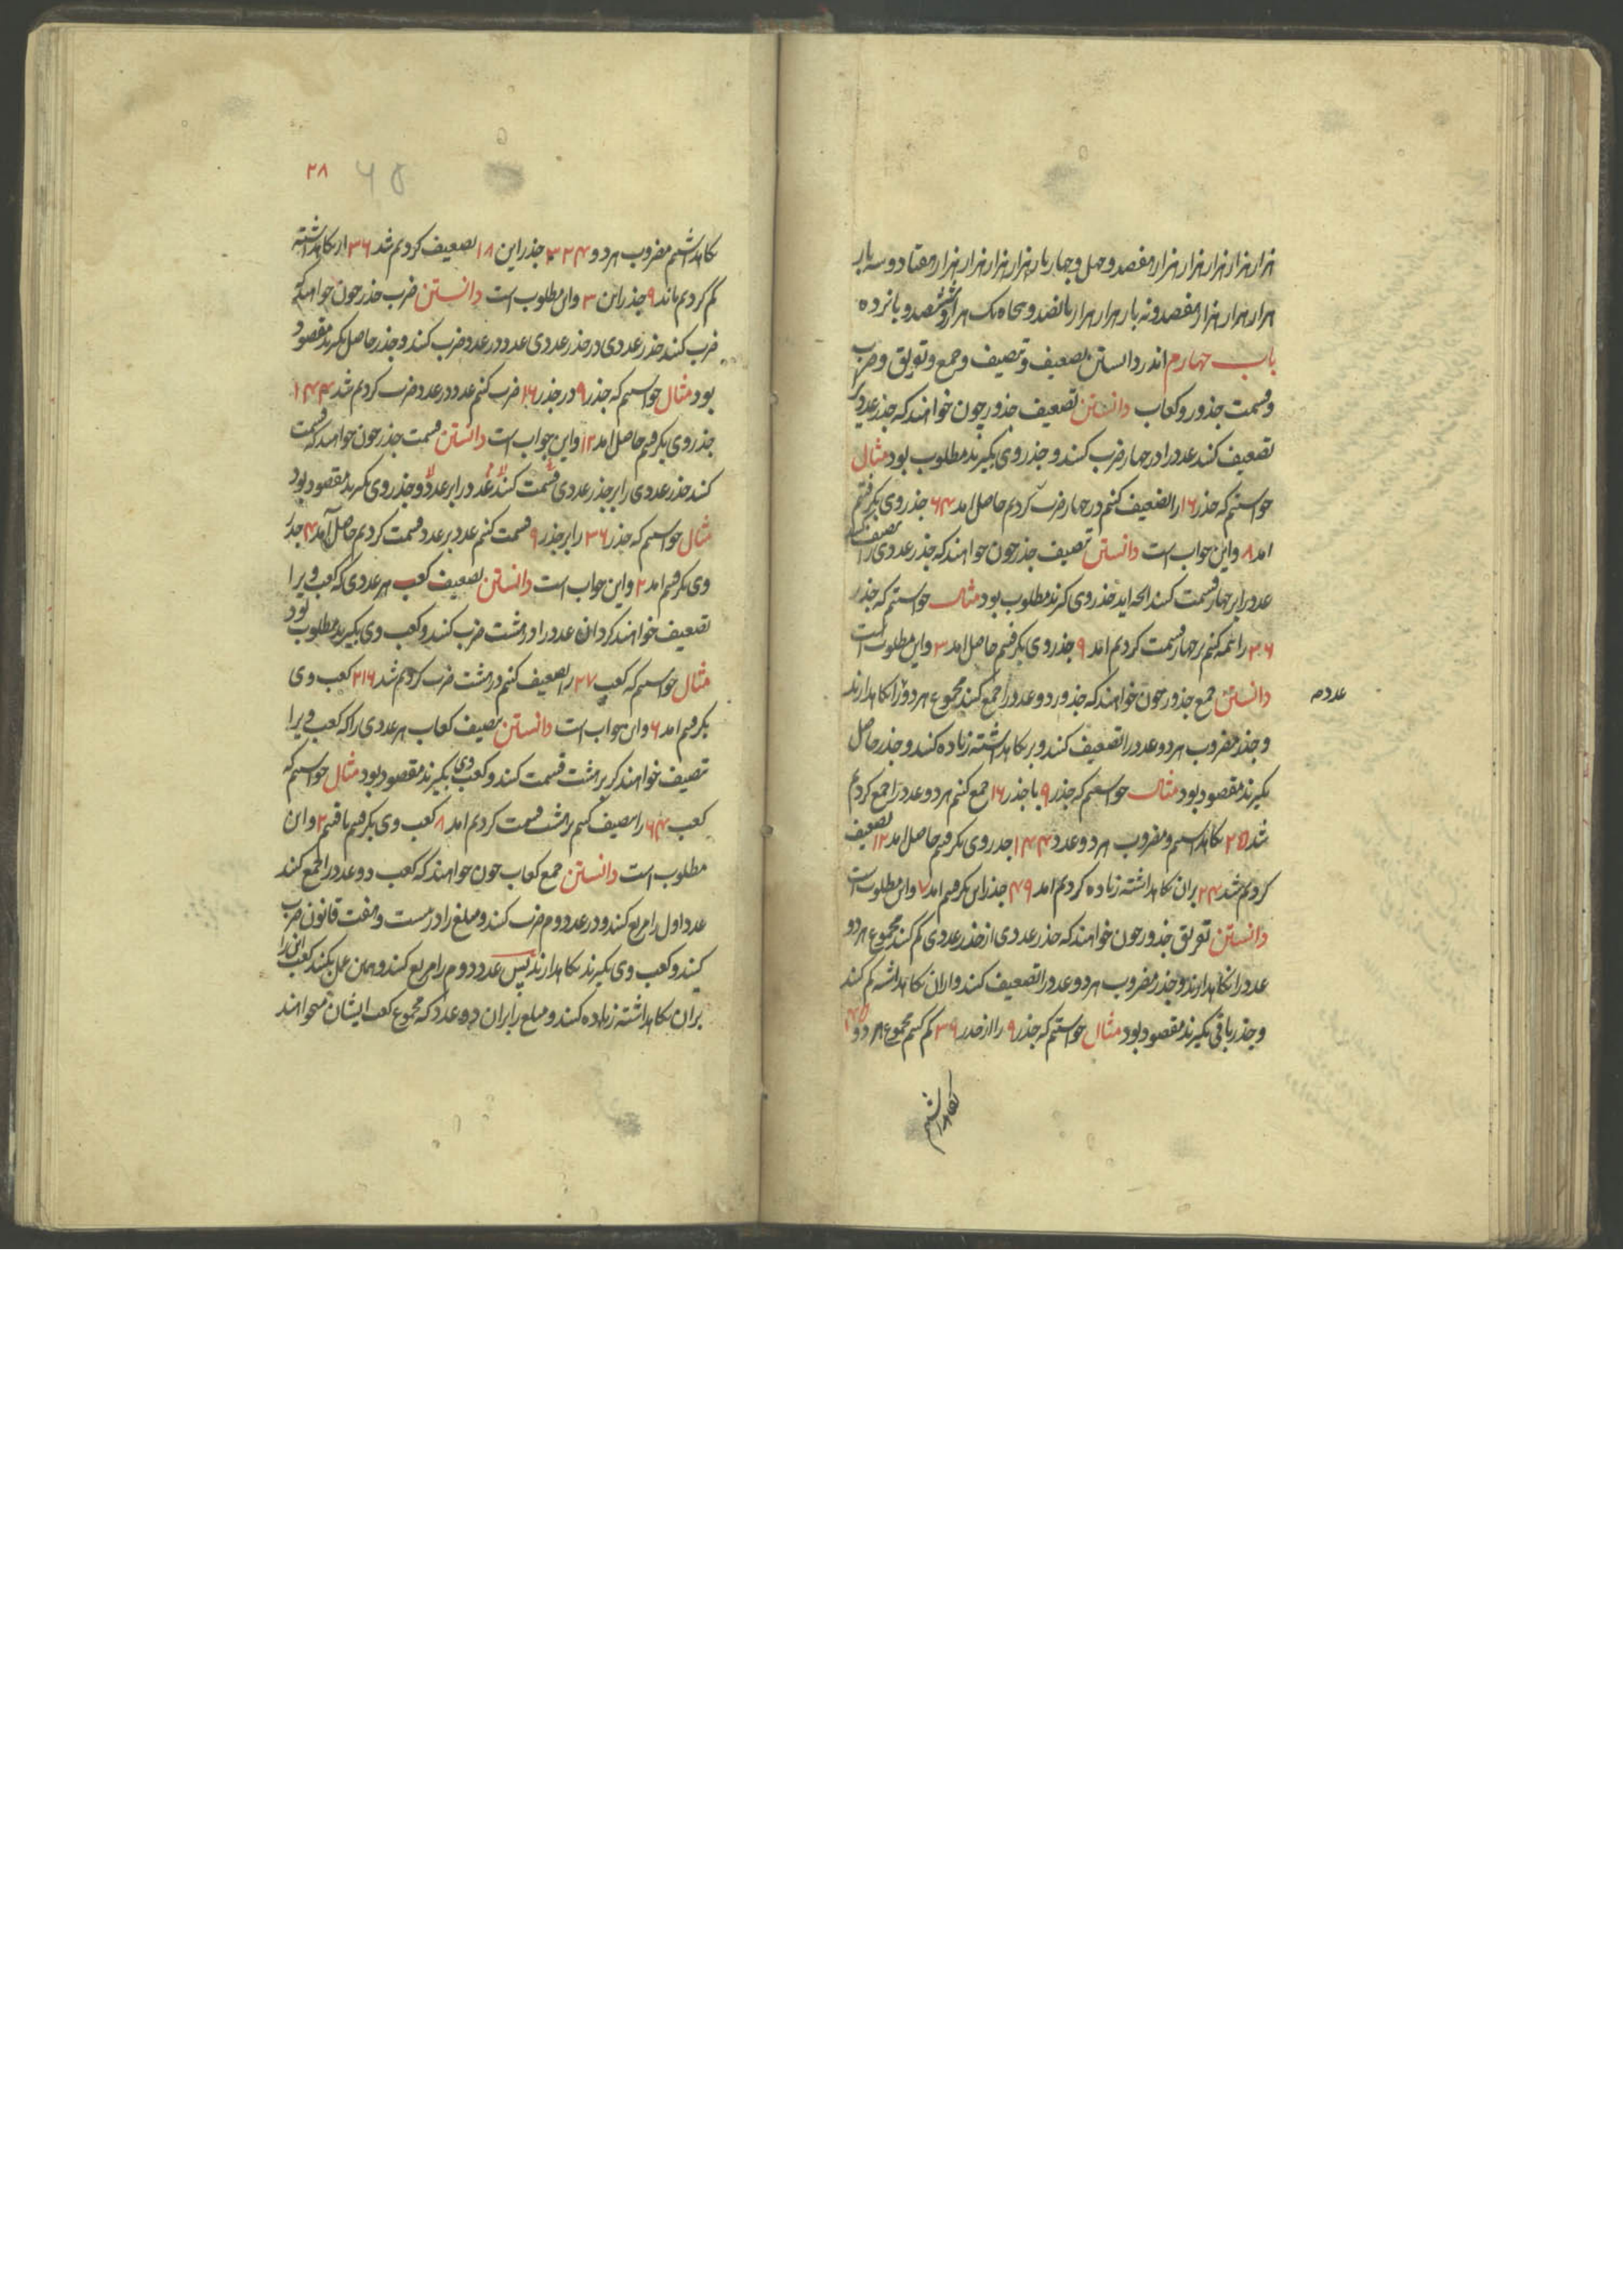 هزار هزار هزار هزار هزار هفصد و چهل و چهار بار هزار هزار هزار هزار هفتاد و سه بار
هزار هزار هزار هفصد و نه بار هزار هزار پانصد و پنجاه یک هزار و ششصد و پانزده
باب چهارم اندر دانستن تضعیف و تنصیف و جمع و تفریق و ضرب
و قسمت جذور و کعاب دانستن تضعیف جذور چون خواهند که جذر عددی را
تضعیف کنند عدد را در چهار ضرب کنند و جذر وی بگیرند مطلوب بود مثال
خواستیم که جذر ۱۶ را تضعیف کنیم در چهار ضرب کردیم حاصل امد ۶۴ جذر وی بگرفتیم
امد ۸ و این جواب است دانستن تنصیف جذر چون خواهند که جذر عددی را تنصیف کنند
عدد را بر چهار قسمت کنند انچه اید جذر وی گیرند مطلوب بود مثال خواستیم که جذر
۳۶ را نیمه کنیم بر چهار قسمت کردیم امد ۹ جذر وی بگرفتیم حاصل امد ۳ و این مطلوب است
دانستن جمع جذور چون خواهند که جذور دو عدد را جمع کنند مجموع هر دو را نکاهدارند
عدده
و جذر مضروب هر دو عدد را تضعیف کنند و بر نکاهداشته زیاده کنند و جذر حاصل
بگیرند مقصود بود مثال خواستیم که جذر ۹ با جذر ۱۶ جمع کنیم هر دو عدد را جمع کردیم
شد ۲۵ نکاهداشتیم و مضروب هر دو عدد ۱۴۴ جذر وی بگرفتیم حاصل امد ۱۲ تضعیف
کردیم شد ۲۴ بران نکاهداشته زیاده کردیم امد ۴۹ جذر این بگرفتیم امد ۷ و این مطلوب است
دانستن تفریق جذور چون خواهند که جذر عددی از جذر عددی کم کنند مجموع هر دو
عدد را نکاهدارند و جذر مضروب هر دو عدد را تضعیف کنند و از ان نکاهداشته کم کنند
و جذر باقی بگیرند مقصود بود مثال خواستیم که جذر ۹ را از جذر ۳۶ کم کنیم مجموع هر دو ۴۵
نکاهداشتیم
۲۸
۶۵
نکاهداشتیم مضروب هر دو ۳۲۴ جذر این ۱۸ تضعیف کردیم شد ۳۶ از نکاهداشته
کم کردیم ماند ۹ جذر این ۳ و این مطلوب است دانستن ضرب جذر چون خواهند که
ضرب کنند جذر عددی در جذر عددی عدد در عدد ضرب کنند و جذر حاصل بگیرند مقصود
بود مثال خواستیم که جذر ۹ در جذر ۱۶ ضرب کنیم عدد در عدد ضرب کردیم شد ۱۴۴
جذر وی بگرفتیم حاصل امد ۱۲ و این جواب است دانستن قسمت جذر چون خواهند که قسمت
کنند جذر عددی را بر جذر عددی قسمت کنند عدد را بر عدد و جذر وی بگیرند مقصود بود
مثال خواستیم که جذر ۳۶ را بر جذر ۹ قسمت کنیم عدد بر عدد قسمت کردیم حاصل آمد ۴ جذر
وی بگرفتیم امد ۲ و این جواب است دانستن تضعیف کعب هر عددی که کعب ویرا
تضعیف خواهند کرد ان عدد را در هشت ضرب کنند و کعب وی بگیرند مطلوب بود
مثال خواستیم که کعب ۲۷ را تضعیف کنیم در هشت ضرب کردیم شد ۲۱۶ کعب وی
بگرفتیم امد ۶ و این جواب است دانستن تنصیف کعاب هر عددی را که کعب ویرا
تنصیف خواهند کرد بر هشت قسمت کنند و کعب وی بگیرند مقصود بود مثال خواستیم که
کعب ۶۴ را تنصیف کنیم بر هشت قسمت کردیم امد ۸ کعب وی بگرفتیم یافتیم ۲ و این
مطلوب است دانستن جمع کعاب چون خواهند که کعب دو عدد را جمع کنند
عدد اول را مربع کنند و در عدد دوم ضرب کنند و مبلغ را در بیست و هفت قانون ضرب
کنند و کعب وی بگیرند نکاهدارند پس عدد دوم را مربع کنند و همین عمل بکنند کعب این را
بران نکاهداشته زیاده کنند و مبلغ را بران دو عدد که مجموع کعب ایشان میخواهند